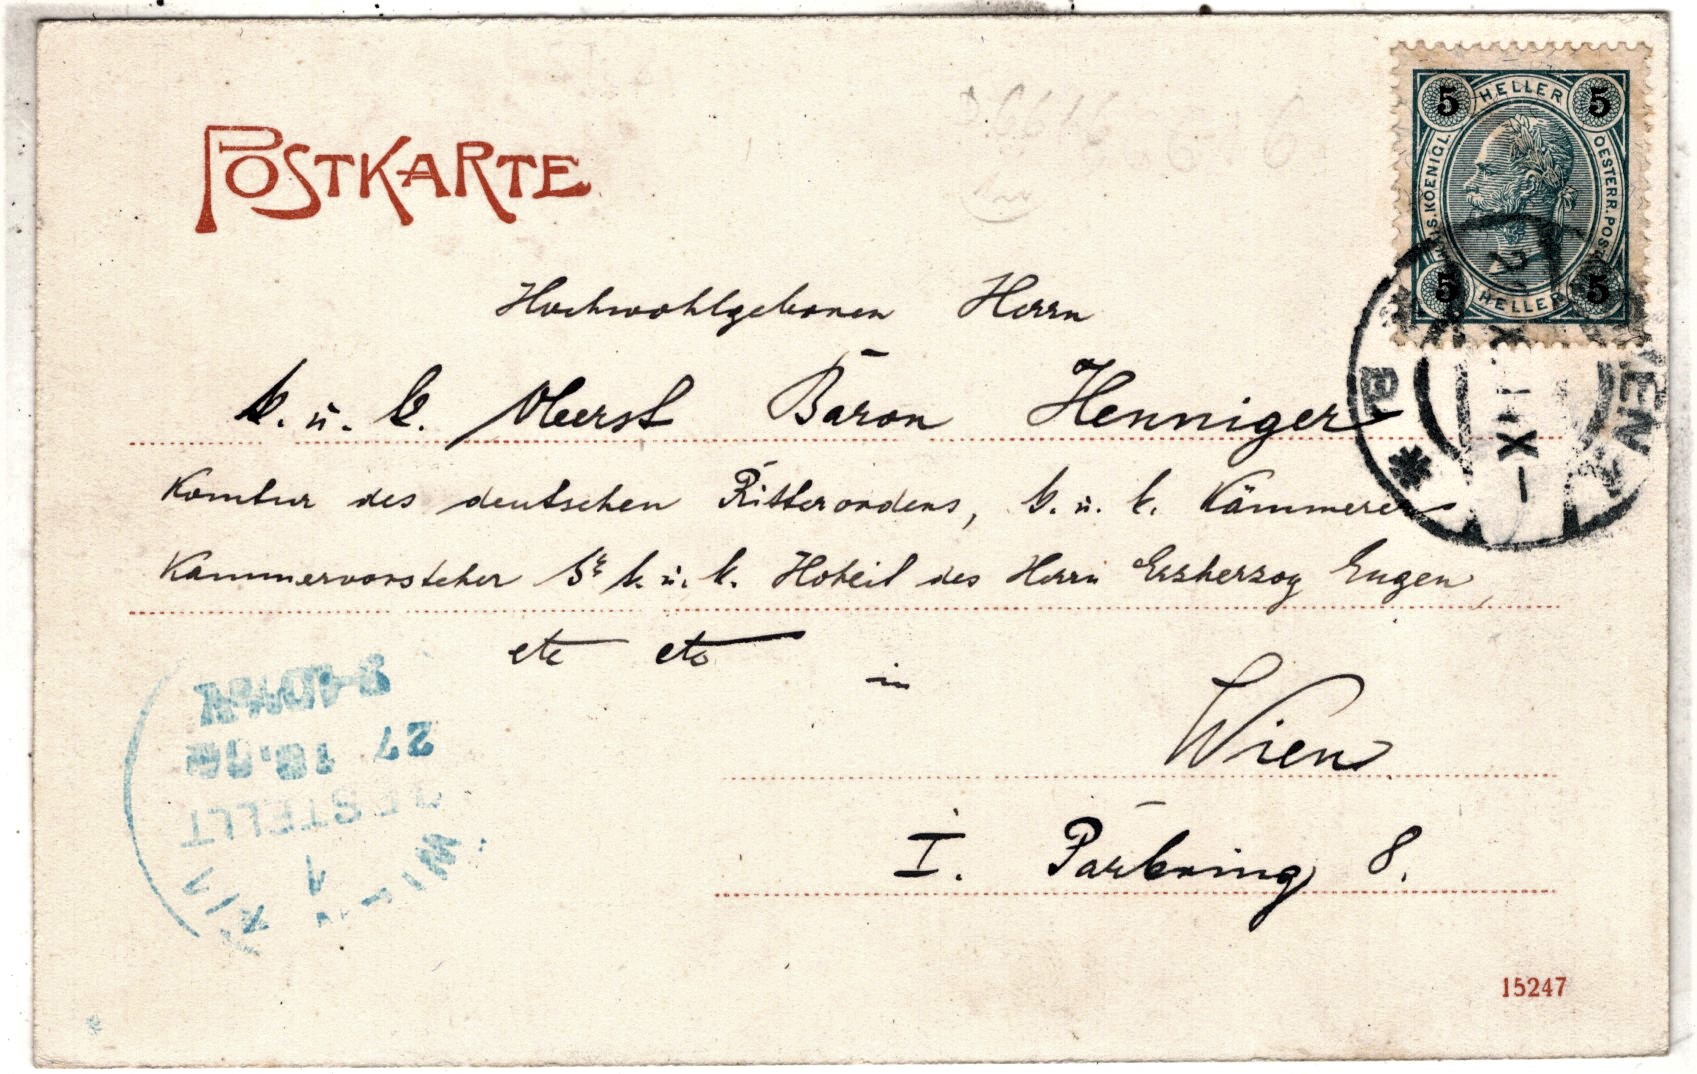 POSTKARTE
5 HELLER 5
KAIS.KOENIGL. OESTERR.POST
5 HELLER 5
Hochwohlgeboren Herrn
k. u. k. Oberst Baron Henniger
Komtur des deutschen Ritterordens, k. u. k. Kämmerer
Kammervorsteher Sr k. u. k. Hoheit des Herrn Erzherzog Eugen,
etc etc
in
Wien
I. Parkring 8.
WIEN
1
BESTELLT
27
15247